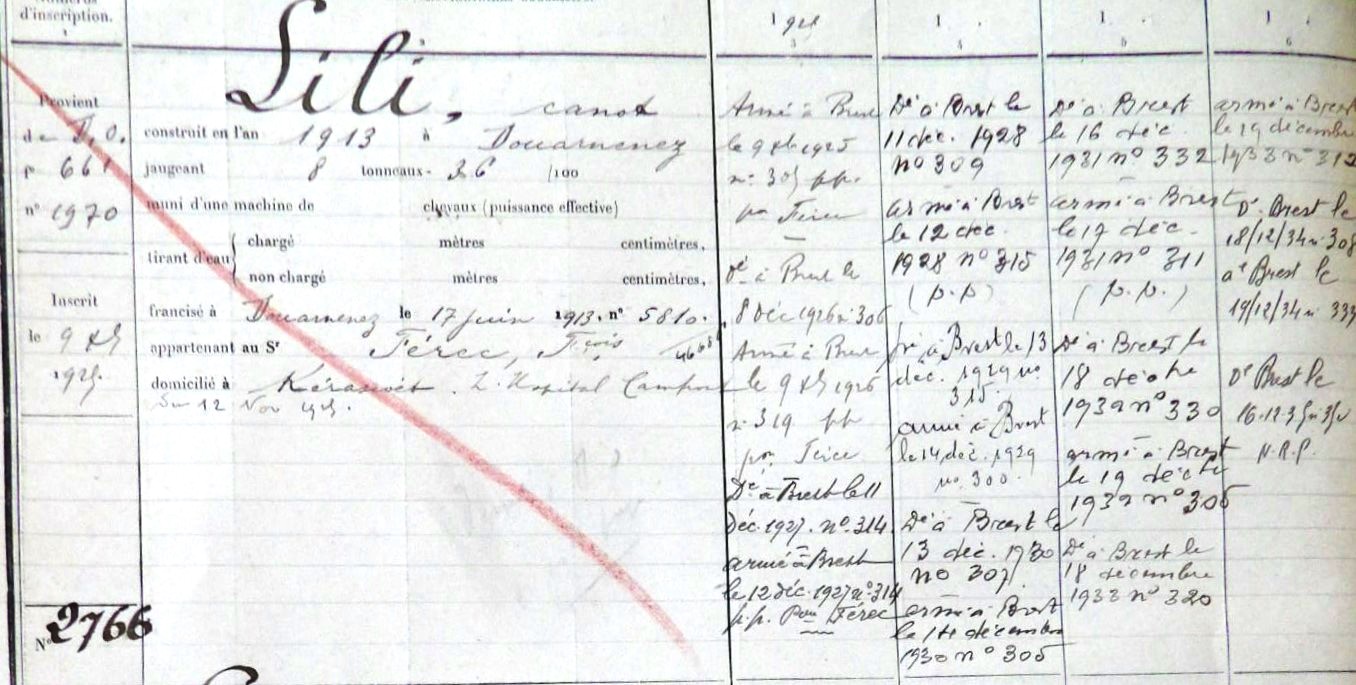 Numéros
d'inscription.
1
Provient
de D. O.
f° 661
n° 1970
Inscrit
le 9 Xbre
1925.
N° 2766
Lili, canot
construit en l'an 1913 à Douarnenez
jaugeant 8 tonneaux - 26 /100
muni d'une machine de chevaux (puissance effective)
tirant d'eau { chargé mètres centimètres,
non chargé mètres centimètres,
francisé à Douarnenez le 17 juin 1913. n° 5810.
appartenant au Sr Férec, Fçois
domicilié à L'Hopital Camfrout
Du 12 Nov 1925.
1925
3
Armé à Brest
le 9 Xbre 1925
n° 305 pp.
pr Férec
Dé à Brest le
8 Déc 1926 n° 306
Armé à Brest
le 9 Xbre 1926
n° 319 pp
pr Férec
Dé à Brest le 11
déc. 1927. n° 314
armé à Brest
le 12 déc. 1927 n° 314
p.p. Pour Férec
1 .
4
Dé à Brest le
11 déc. 1928
n° 309
armé à Brest
le 12 déc.
1928 n° 315
(p.p)
Dé à Brest le 13
déc. 1929 no
315.
armé à Brest
le 14 déc. 1929
no 300.
Dé à Brest le
13 déc. 1930
no 307.
armé à Brest
le 14 décembre
1930 n° 305
1 .
5
Dé à Brest
le 16 déc.
1931 n° 332
armé à Brest
le 17 déc.
1931 n° 311
(p.p.)
Dé à Brest le
18 décbre
1932 n° 330
armé à Brest
le 19 décbre
1932 n° 305
Dé à Brest le
18 décembre
1933 n° 320
1 .
6
armé à Brest
le 19 décembre
1933 n° 312
Dé Brest le
18/12/34 n° 308
aé Brest le
19/12/34 n° 333
Dé Brest le
16.12.35
N.R.P.